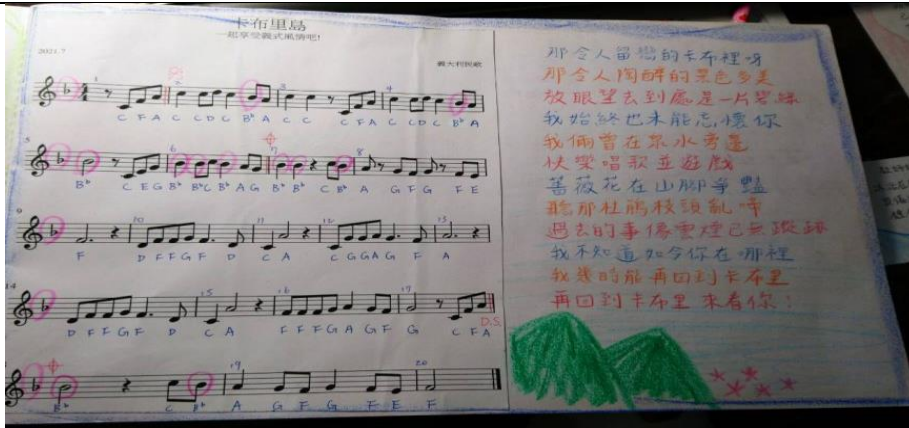 卡布里島
一起享受義式風情吧!
2021.7
義大利民歌
1 2 3 4
C F A C C D C B♭ A C C C F A C C D C B♭ A
5 6 7 8
B♭ C E G B♭ B♭ C B♭ A G B♭ B♭ C B♭ A G F G F E
9 10 11 12 13
F D F F G F D C A C G G A G F A
14 15 16 17
D F F G F D C A F F F G A G F G C F A
D.S.
19 20
B♭ C B♭ A G F G F E F
那令人留戀的卡布裡呀
那令人陶醉的景色多美
放眼望去到處是一片碧綠
我始終也未能忘懷你
我倆曾在泉水旁邊
歡唱歌並遊戲
薔薇花在山腳爭豔
聽那杜鵑枝頭亂啼
過去的事像雲煙已無蹤跡
我不知道如今你在哪裡
我幾時能再回到卡布里
再回到卡布里來看你!